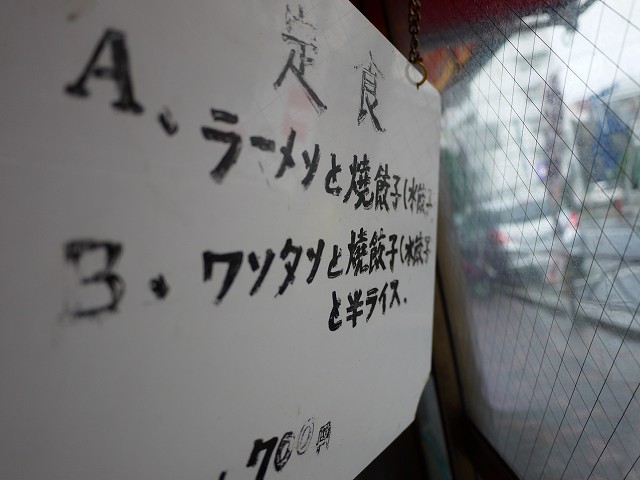 定食
A、ラーメンと焼餃子(水餃子
B、ワンタンと焼餃子(水餃子
と半ライス.
700円